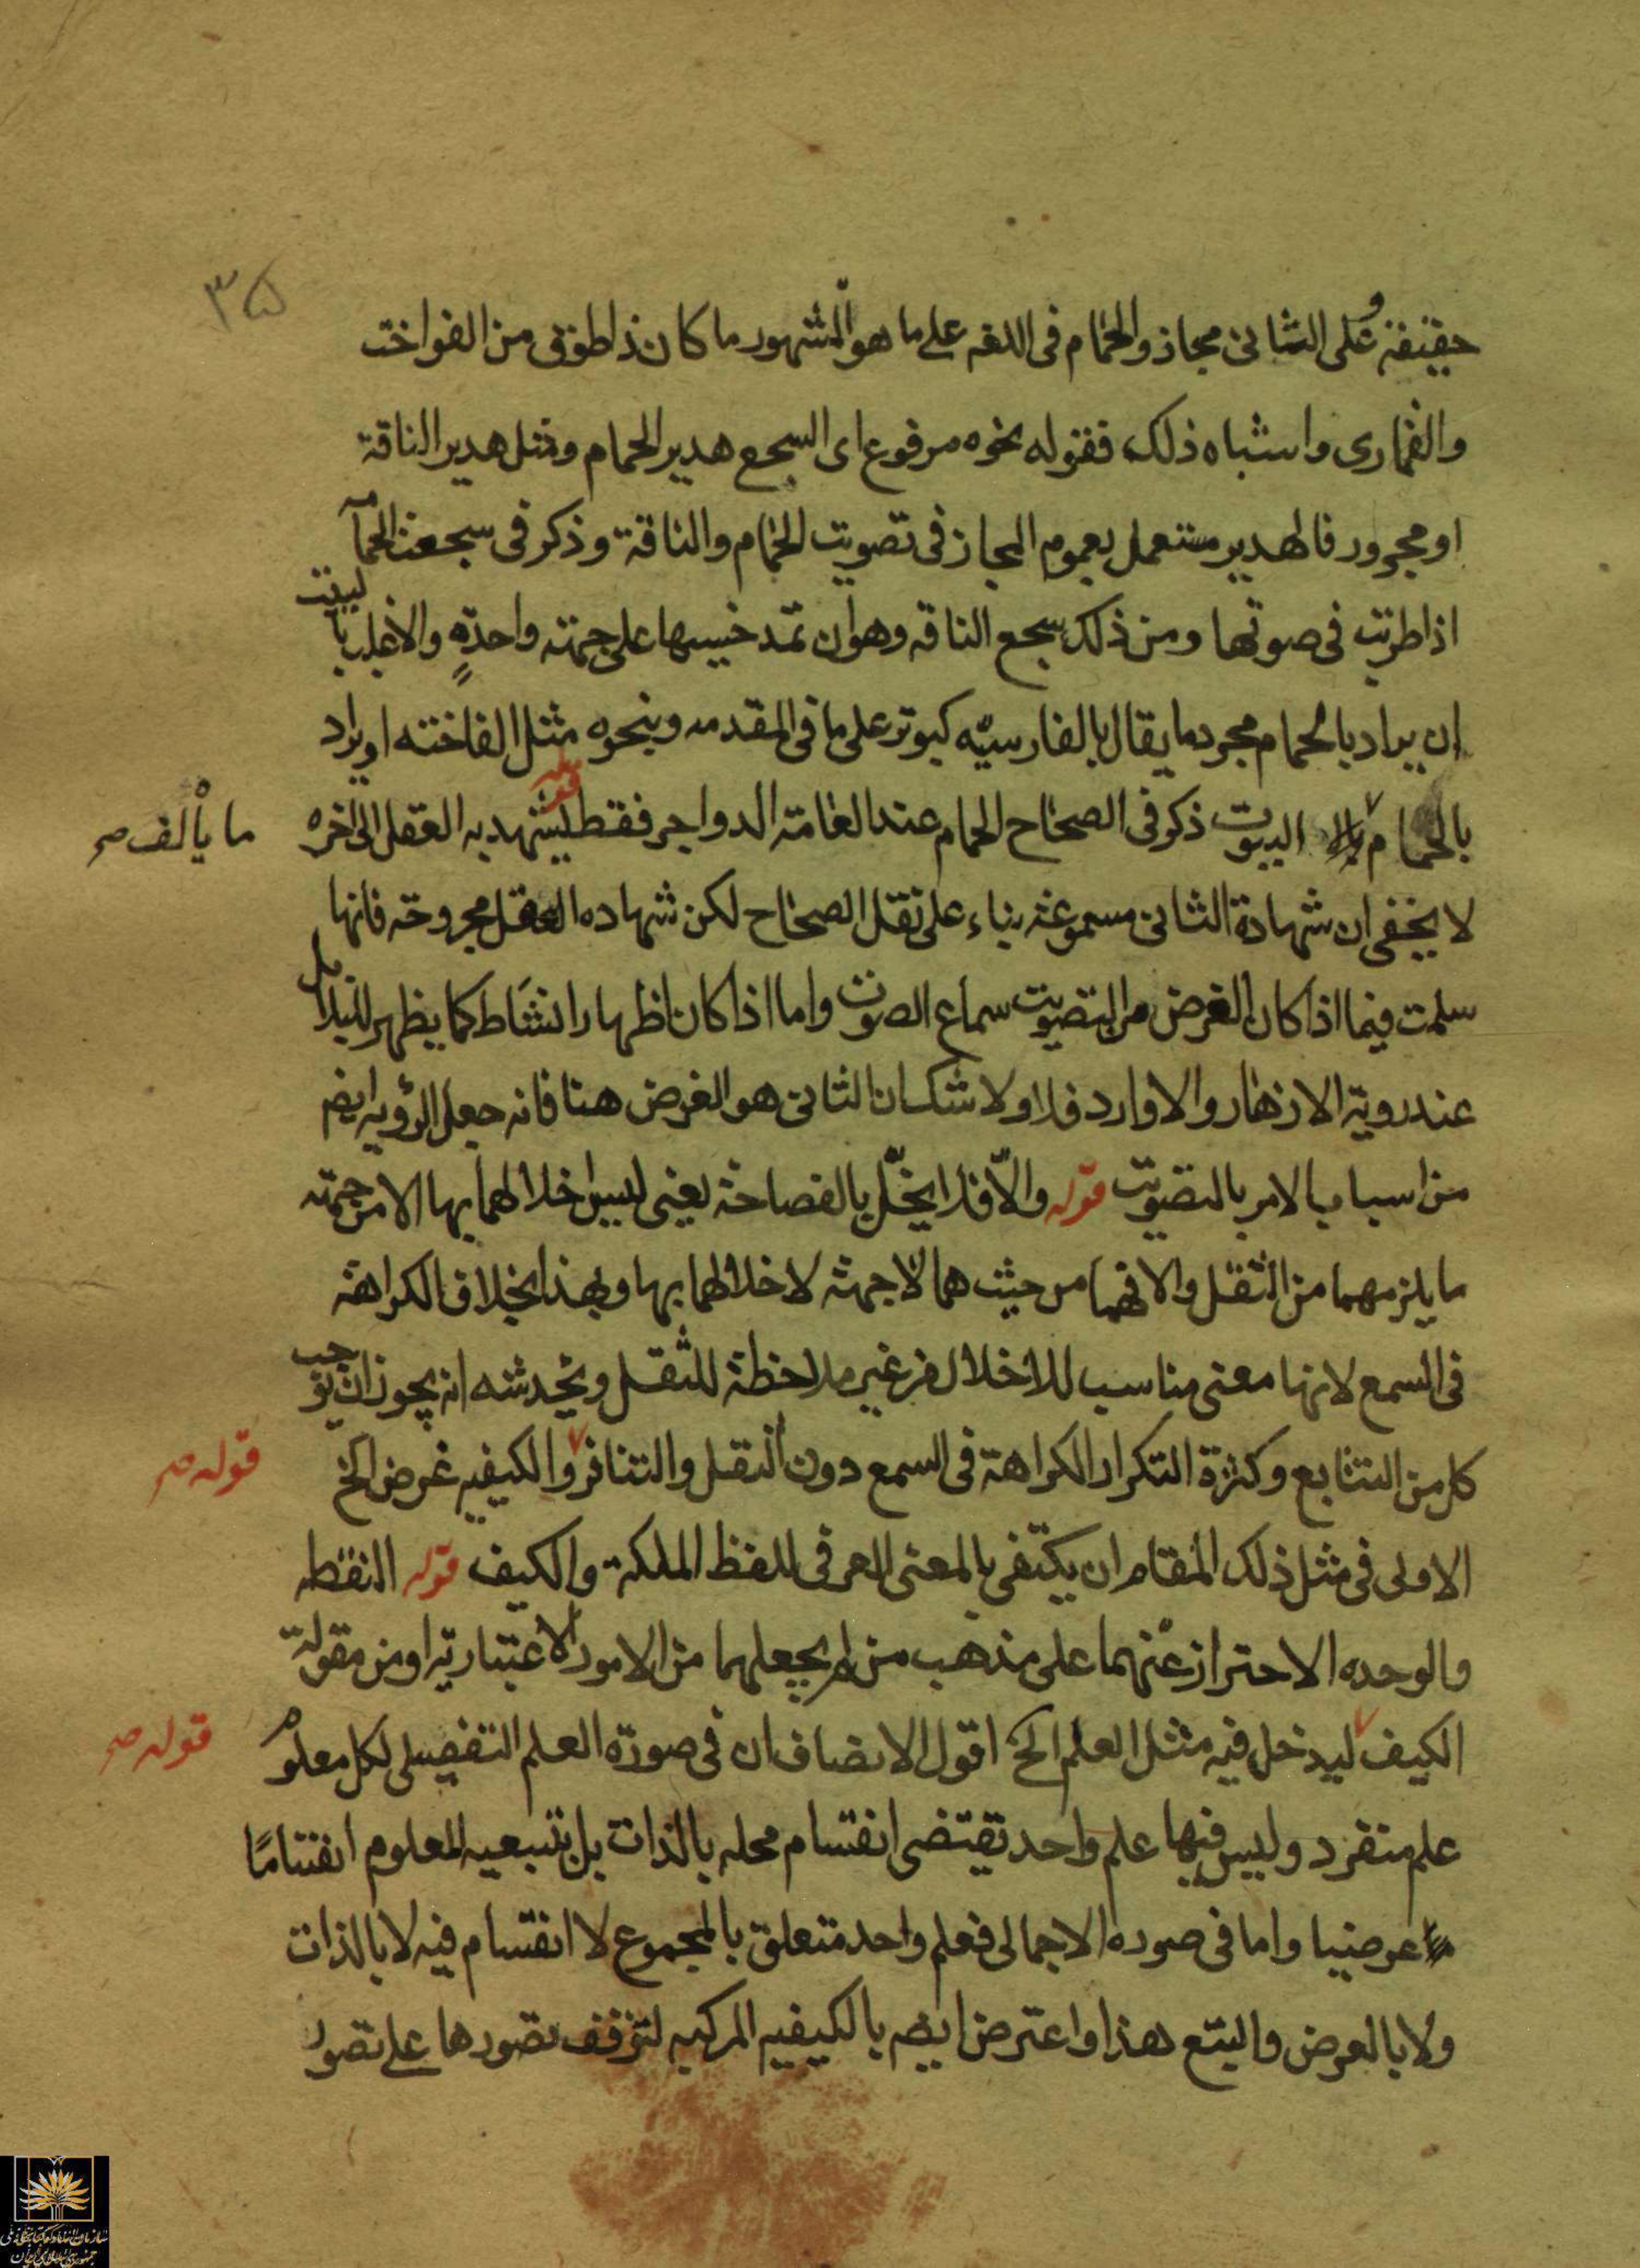 ۳۵
حقيقة وعلى الثانى مجاز والحمام فى اللغه على ما هو المشهور ما كان ذا طوق من الفواخت
والقمارى واشباه ذلك فقوله نحوه مرفوع اى السجع هدير الحمام ومثل هدير الناقة
او مجرور فالهدير مستعمل بعموم المجاز فى تصويت الحمام والناقة وذكر فى سجعت الحمامه
اذا طربت فى صوتها ومن ذلك سجع الناقه وهو ان تمد حنينها على جهته واحدةٍ والاغلب ليبت
ان يراد بالحمام مجرد ما يقال بالفارسيّه كبوتر على ما فى المقدمه وبنحوه مثل الفاخته او يراد
بالحمام البيوت ذكر فى الصحاح الحمام عند العامّة الدواجر فقط قوله ليشهد به العقل الى اخره
ما يألف صح
لا يخفى ان شهادة الثانى مسموعة بناء على نقل الصحاح لكن شهاده العقل مجروحة فانها
سلمت فيما اذا كان الغرض من التصويت سماع الصوت واما اذا كان اظهار انشاط كما يظهر للبلابل
عند روية الازهار والاوارد فلا ولا شك ان الثانى هو الغرض هنا فانه جعل الرؤيه ايضه
من اسباب الامر بالتصويت قوله والّا فلا يخلّ بالفصاحة يعنى ليس اخلالهما بها الا من جهته
ما يلزمهما من الثقل والا فهما من حيث هما لا جهته لاخلالهما بها وهذا بخلاف الكراهة
فى السمع لانها معنى مناسب للاخلال من غير ملاحظة للثقل ويخدشه انه يجوز ان يوجب
كل من التتابع وكثرة التكرار الكراهة فى السمع دون الثقل والتنافر والكيفيه عرض الخ
قوله صح
الاولى فى مثل ذلك المقام ان يكتفى بالمعنى العرفى للفظ الملكة والكيف قوله النقطه
والوحده الاحتراز عنهما على مذهب من لم يجعلهما من الامور الاعتبارية او من مقولة
الكيف ليدخل فيه مثل العلم الخ اقول الانصاف ان فى صورة العلم التفصيلى لكل معلوم
قوله صح
علم منفرد وليس فيها علم واحد يقتضى انقسام محله بالذات بل بتبعيه المعلوم انقساما
عرضيا واما فى صوره الاجمالى فعلم واحد متعلق بالمجموع لا انقسام فيه لا بالذات
ولا بالعرض والتبع هذا واعترض ايضه بالكيفيه المركبه لتوقف تصورها على تصور